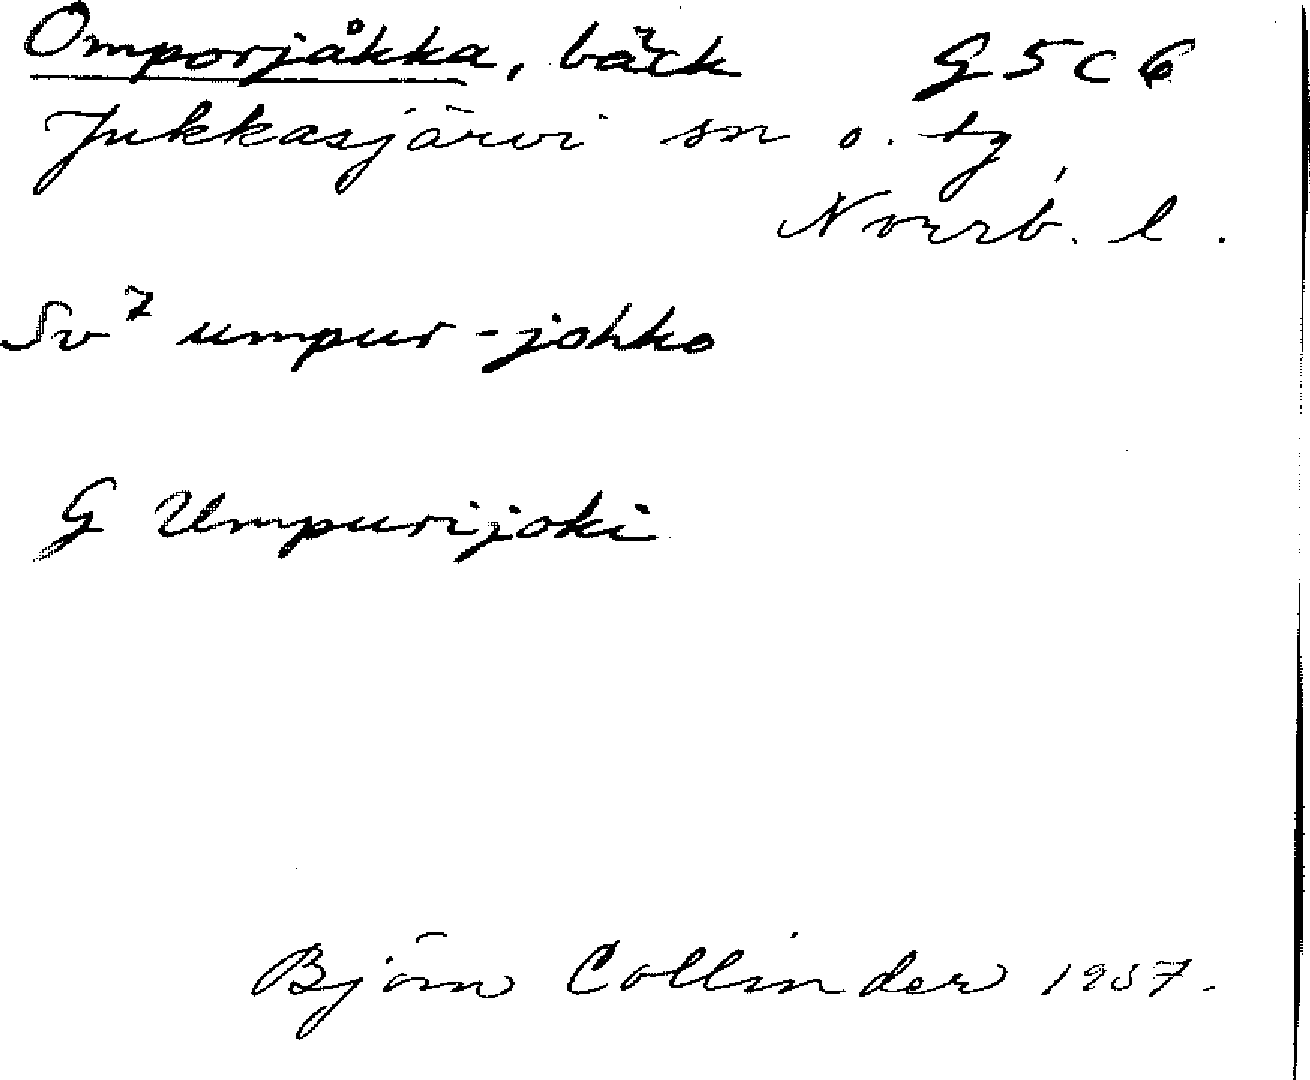 Omporjåkka, bäck G5c6
Jukkasjärvi sn o. tg,
Norrb. l.
Sv⁷ umpur-johko
G Umpurijoki
Björn Collinder 1957.